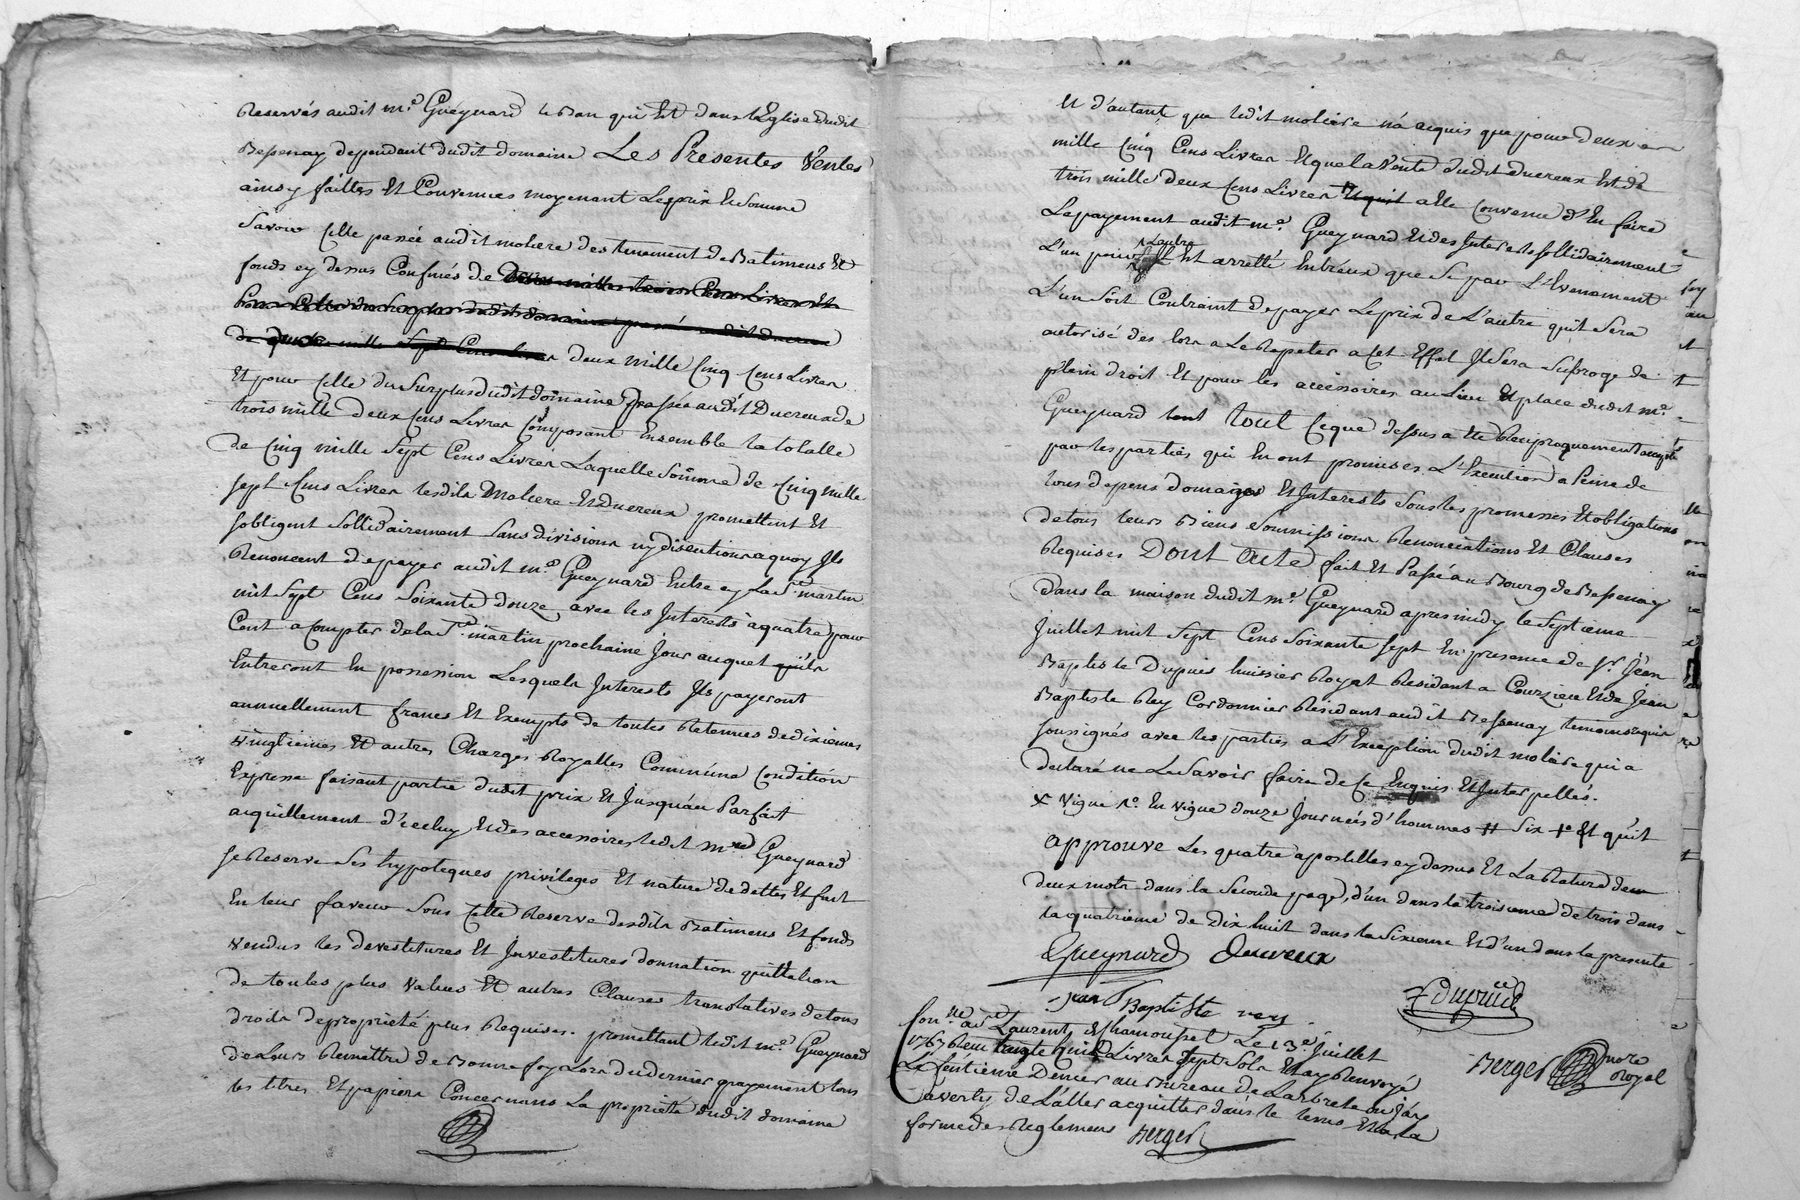 Reservés audit m.e Gueynard le Ban qui Est dans l'Eglise dudit
Bessenay dependant dudit domaine Les Presentes Ventes
ainsy faittes Et Convenues moyenant Le prix En Somme
Savoir Celle passée audit moliere des tenement de Batimens Et
fonds cy dessus Confinés de deux mille trois Cens Livres Et
Pour Celle du Surplus dudit domaine passé audit ducreux
de mille Sept Cens Livres deux mille Cinq Cens Livres
Et pour Celle du Surplus dudit domaine passée audit Ducreux de
trois mille deux Cens Livres Composant Ensemble la totalle
de Cinq mille Sept Cens Livres Laquelle Somme de Cinq mille
Sept Cens Livres lesdits Moliere Et ducreux promettent Et
s'obligent Sollidairement Sans divisions ny discutions a quoy Ils
Renoncent de payer audit m.e Gueynard Entre cy La St martin
mil Sept Cens Soixante douze avec les Interests à quatre pour
Cent a Compter de la St martin prochaine Jour auquel qu'ils
Entreront En possession Lesquels Interests Ils payeront
annuellement francs Et Exempts de toutes Retenues de dixiemes
vingtiemes Et autres Charges Royalles Comm'une Condition
Expresse faisant partie dudit prix Et Jusqu'au Parfait
acquittement d'Iceluy Et des accessoires ledit m.e Gueynard
Se Reserve Ses hypoteques privileges Et nature de dettes Et fait
En leur faveur Sous Cette Reserve desdits Batimens Et fonds
vendus les devestitures Et Investitures donnation quittation
de toutes plus values Et autres Clauses translatives de tous
droits de proprieté plus Requises. promettant ledit m.e Gueynard
de Leurs Remettre de Bonne foy Lors du dernier payement tous
les titres Et papiers Concernans La proprieté dudit domaine
Et d'autant que ledit moliere n'a acquis que pour deux
mille Cinq Cens Livres Et que la Vente dudit ducreux Est de
trois mille deux Cens Livres a Ete Convenu d'En faire
Le payement audit m.e Gueynard Et des Interets sollidairement
L'un pour L'autre Il Est arretté Entr'eux que Si par L'Evenement
L'un Soit Contraint de payer Le prix de L'autre qu'il Sera
autorisé des lors a Le Repeter a Cet Effet Il Sera Subrogé de
plein droit Et pour les accessoires au Lieu Et place dudit m.e
Gueynard tout Ce que dessus a Ete Reciproquement accepté
par les parties qui En ont promises L'Execution a Peine de
tous depens domages Et Interests Sous les promesses Et obligations
de tous leurs Biens Soumissions Renonciations Et Clauses
Requises Dont Acte fait Et Passé au Bourg de Bessenay
Dans la maison dudit m.e Gueynard apres midy le Septieme
Juillet mil Sept Cens Soixante Sept En presence de Sr Jean
Baptiste Dupuis huissier Royal Residant a Courzieu Et de Jean
Baptiste Rey Cordonnier Residant audit Bessenay temoins Requis
soussignés avec les parties a L'Exception dudit moliere qui a
declaré ne Le Savoir faire de Ce Enquis Et Interpellés.
x vigne n.o En vigne douze Journées d'hommes # Six + Et qu'il
approuve Les quatre apostilles cy dessus Et La Rature de
deux mots dans la Seconde page, d'un dans la troisieme de trois dans
la quatrieme de Dix huit dans la Sixieme Et d'un dans la presente
Gueynard Ducreux
jean Baptiste rey
Dupuis
Berger nore Royal
Con.lle a St Laurent de Chamousset Le 13.e Juillet
1767 Reçu trente quinze Livres Sept Sols Et ay Renvoyé
Le Centieme Denier au Bureau de Larbrele ou J'ay
averty de L'aller acquitter dans le tems Et a la
forme des Reglemens Berger